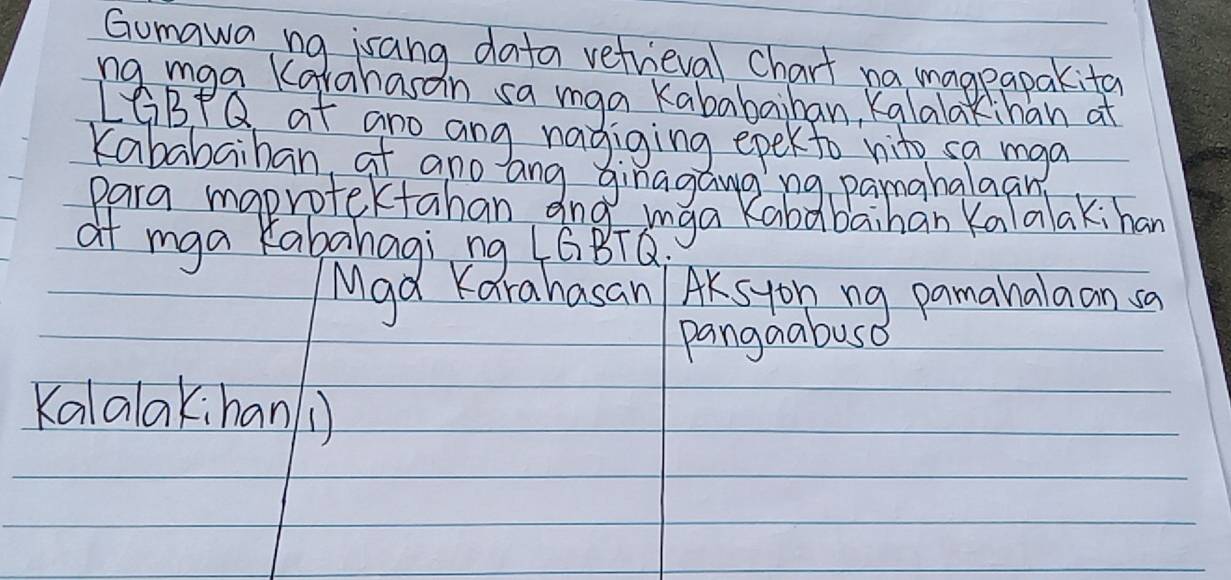 Gumawa ng isang data retrieval chart na magpapakita
ng mga Karahasan sa mga Kababaihan, Kalalakihan at
LGBTQ at ano ang nagiging epekto nito sa mga
Kababaihan, at ano ang ginagawa ng pamahalaan
para maprotektahan ang mga Kababaihan Kalalakihan
at mga Kabahagi ng LGBTQ.
Mga Karahasan
AKsyon ng pamahalaan sa
pangaabuso
Kalalakihan
1)